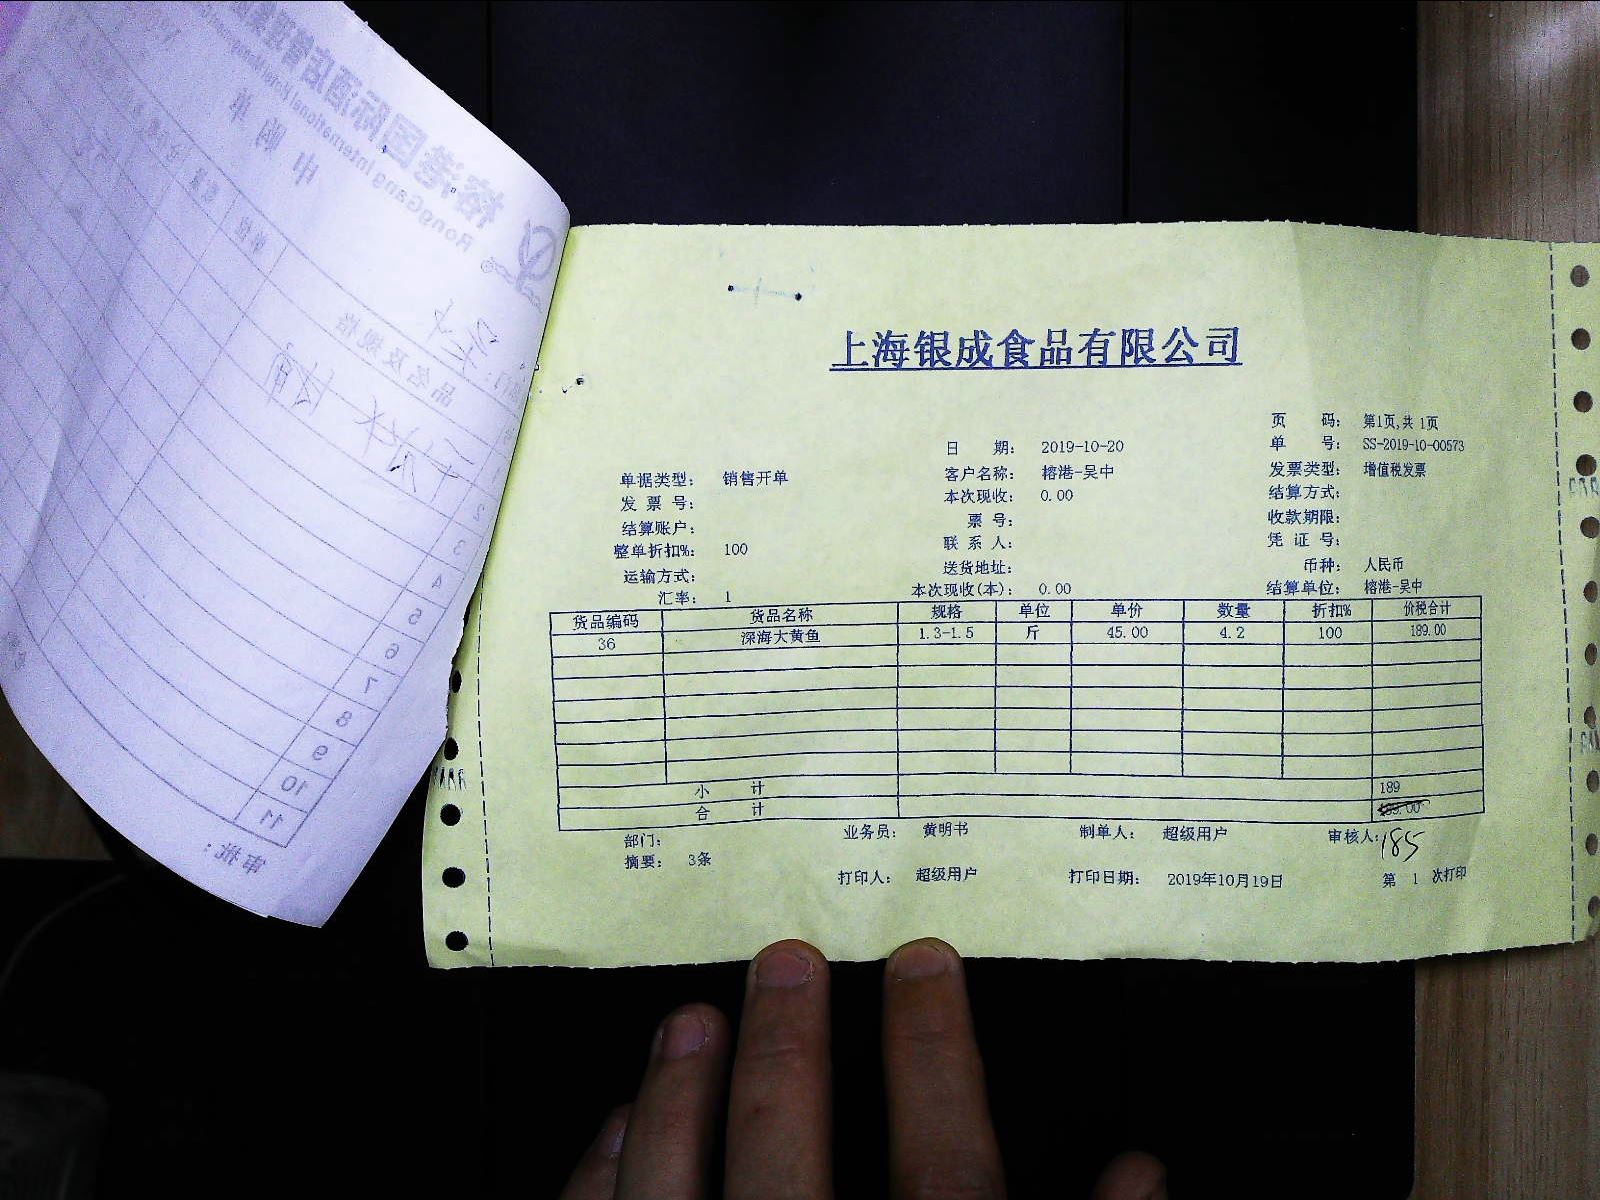 榕港国际酒店管理
RongGang International Hotel Management
申购单
品名及规格
单位
数量
2
3
4
5
6
7
8
9
10
11
审批:
上海银成食品有限公司
页 码: 第1页,共 1页
日 期: 2019-10-20 单 号: SS-2019-10-00573
单据类型: 销售开单 客户名称: 榕港-吴中 发票类型: 增值税发票
发 票 号: 本次现收: 0.00 结算方式:
结算账户: 票 号: 收款期限:
整单折扣%: 100 联 系 人: 凭 证 号:
运输方式: 送货地址: 币种: 人民币
汇率: 1 本次现收(本): 0.00 结算单位: 榕港-吴中
货品编码 货品名称 规格 单位 单价 数量 折扣% 价税合计
36 深海大黄鱼 1.3-1.5 斤 45.00 4.2 100 189.00
小 计 189
合 计
部门: 业务员: 黄明书 制单人: 超级用户 审核人: 185
摘要: 3条
打印人: 超级用户 打印日期: 2019年10月19日 第 1 次打印